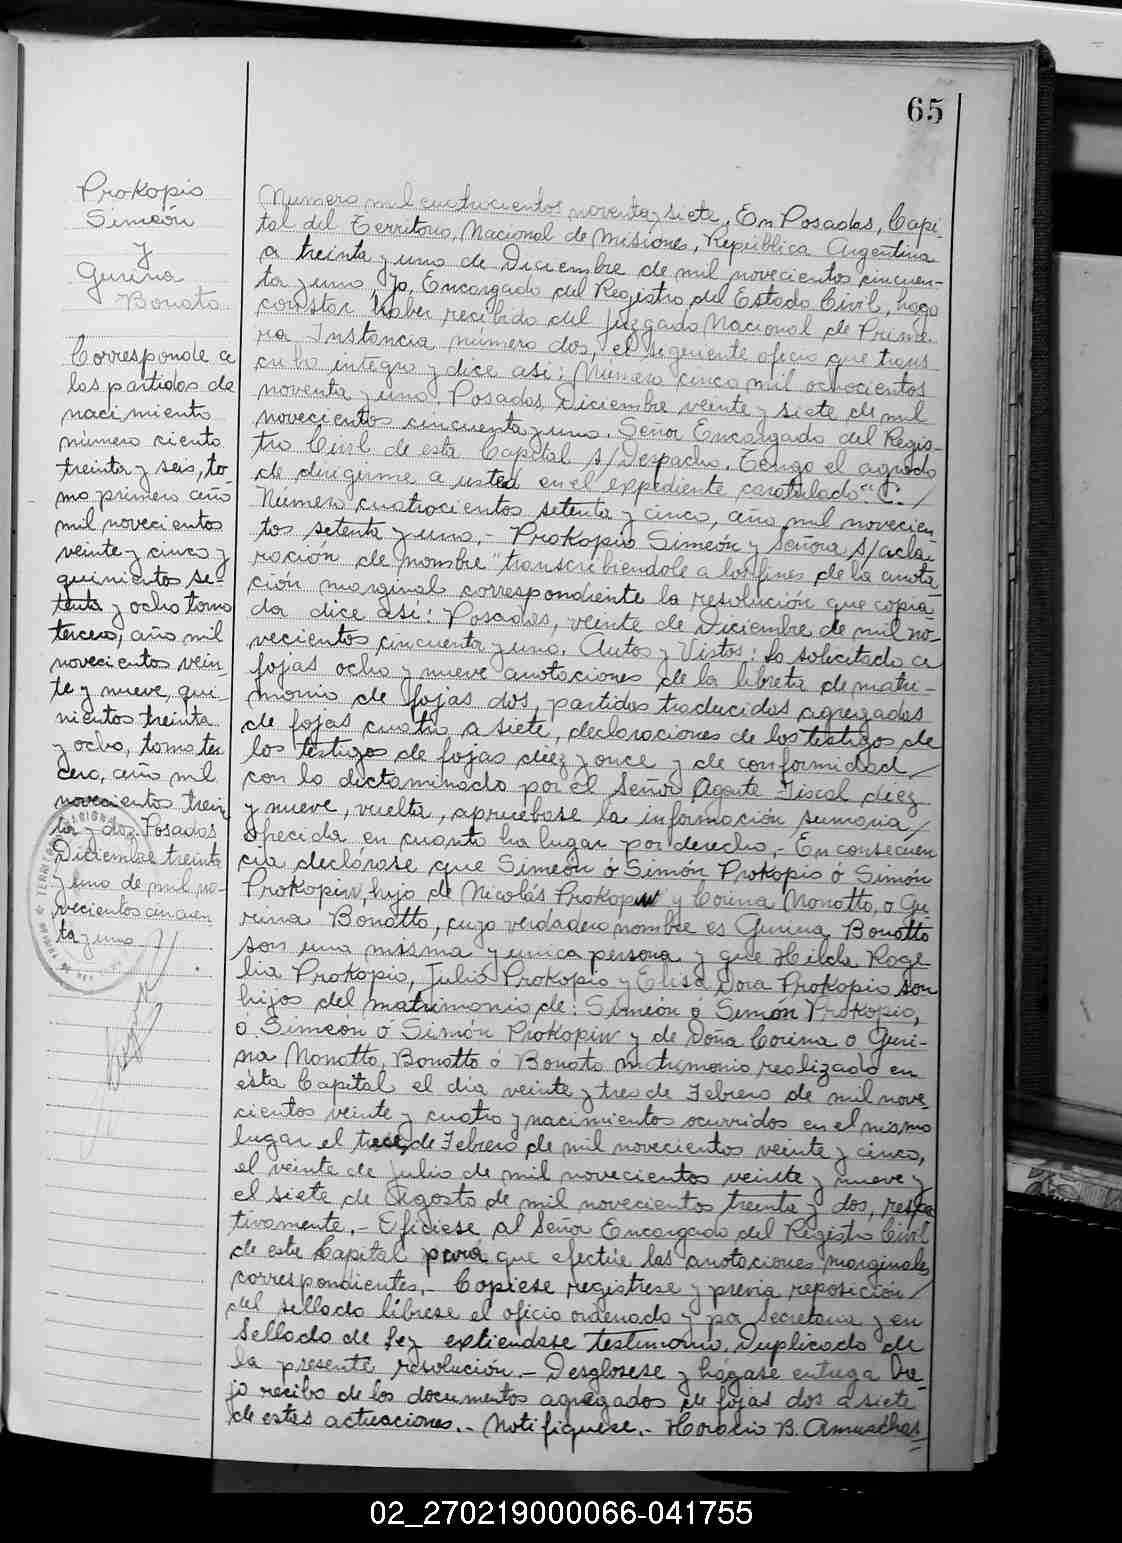 65
Prokopio
Simeón
y
Gurina
Bonato
Corresponde a
las partidas de
nacimiento
número ciento
treinta y seis, to
mo primero año
mil novecientos
veinte y cinco y
quinientos se-
tenta y ocho tomo
tercero, año mil
novecientos vein-
te y nueve, qui-
nientos treinta
y ocho, tomo ter
cero, año mil
novecientos trein
ta y dos. Posadas
Diciembre treinta
y uno de mil no-
vecientos cincuen
ta y uno
Numero mil cuatrocientos noventa y siete, En Posadas, Capi-
tal del Territorio Nacional de Misiones, República Argentina
a treinta y uno de Diciembre de mil novecientos cincuen-
ta y uno, Yo, Encargado del Registro del Estado Civil, hago
constar haber recibido del Juzgado Nacional de Prime
ra Instancia número dos, el siguiente oficio que trans
cribo integro y dice asi: Numero cinco mil ochocientos
noventa y uno. Posadas, Diciembre veinte y siete de mil
novecientos cincuenta y uno. Señor Encargado del Regis-
tro Civil de esta Capital S/Despacho. Tengo el agrado
de dirigirme a usted en el expediente caratulado "C: /
Número cuatrocientos setenta y cinco, año mil novecien
tos setenta y uno, - Prokopio Simeón y Señora S/acla-
ración de nombre" transcribiendole a los fines de la anota
ción marginal correspondiente la resolución que copia-
da dice asi: Posadas, veinte de Diciembre de mil no-
vecientos cincuenta y uno. Autos y Vistos: Lo solicitado a
fojas ocho y nueve anotaciones de la libreta de matri-
monio de fojas dos, partidas traducidas agregadas
de fojas cuatro a siete, declaraciones de los testigos de
los testigos de fojas diez y once y de conformidad /
con lo dictaminado por el Señor Agente Fiscal diez
y nueve, vuelta, apruebase la información sumaria /
ofrecida en cuanto ha lugar por derecho, - En consecuen
cia declárase que Simeón ó Simón Prokopio ó Simón
Prokopiw, hijo de Nicolás Prokopiw y Corina Monotto, o Gu-
rina Bonotto, cuyo verdadero nombre es Gurina Bonotto
son una missma y unica persona y que Hilda Roge
lia Prokopio, Julio Prokopio y Elisa Dora Prokopio son
hijos del matrimonio de: Simeón ó Simón Prokopio,
ó Simeón ó Simón Prokopiw y de Doña Corina o Guri-
na Monotto, Bonotto ó Bonato matrimonio realizado en
ésta Capital el dia veinte y tres de Febrero de mil nove-
cientos veinte y cuatro y nacimientos ocurridos en el mismo
lugar el trece de Febrero de mil novecientos veinte y cinco,
el veinte de Julio de mil novecientos veinte y nueve y
el siete de Agosto de mil novecientos treinta y dos, respec
tivamente. - Ofíciese al Señor Encargado del Registro Civil
de esta Capital para que efectúe las anotaciones marginales
correspondientes. - Copiese registrese y previa reposición /
del sellado líbrese el oficio ordenado y por Secretaria y en
Sellado de Ley extiendase testimonio. Duplicado de
la presente resolución. - Desglosese y hágase entrega ba-
jo recibo de los documentos agregados de fojas dos a siete
de estas actuaciones. - Notifiquese. - Horacio B. Amuschas
02_270219000066-041755